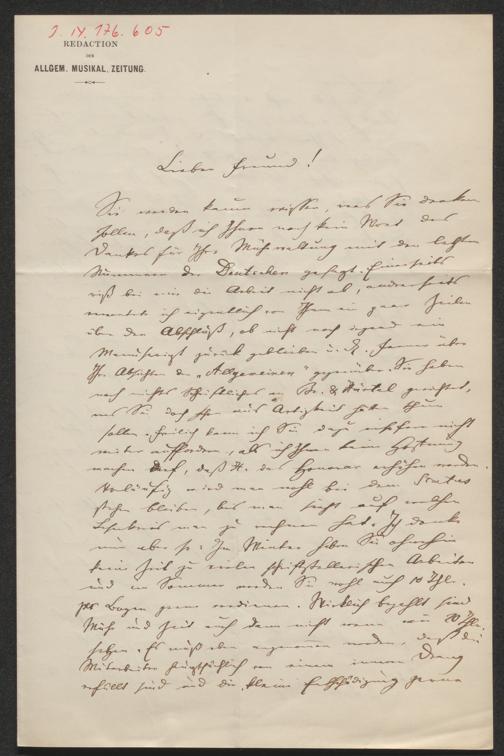 J. N. 176.605
REDACTION
DER
ALLGEM. MUSIKAL. ZEITUNG.
Lieber Freund!
Sie werden kaum wissen, was Sie denken
sollen, daß ich Ihnen noch kein Wort des
Dankes für Ihre Mühwaltung mit den letzten
Nummern der Deutschen gesagt. Einerseits
riß bei mir die Arbeit nicht ab, anderseits
wartete ich eigentlich von Ihnen ein paar Zeilen
über den Abschluß, ob nicht noch irgend ein
Manuscript zurück geblieben u. d. ferner über
Ihr Absichten der „Allgemeinen" gegenüber. Sie haben
noch nichts Schriftliches an Br. & Härtel gerichtet,
was Sie doch schon aus Artigkeit hätten thun
sollen. Freilich kann ich Sie dazu insofern nicht
weiter auffordern, als ich Ihnen keine Hoffnung
machen darf, daß H. das Honorar erhöhen werden.
Vorläufig wird man wohl bei dem Status
stehen bleiben, bis man sieht auf welchen
man zu rechnen hat. Ich denke
mir aber so: Im Winter haben Sie ohnehin
kein Zeit zu vielen schriftstellerischen Arbeiten
und im Sommer werden Sie wohl auch 10 Thl.
pr Bogen gern verdienen. Wirklich bezahlt sind
Mühe und Zeit auch dann nicht wenn wir 20 Thl.
setzen. Es muß eben angenommen werden, daß die
Mitarbeiter hauptsächlich von einem innern Drang
erfüllt sind und die kleine Entschädigung gerne